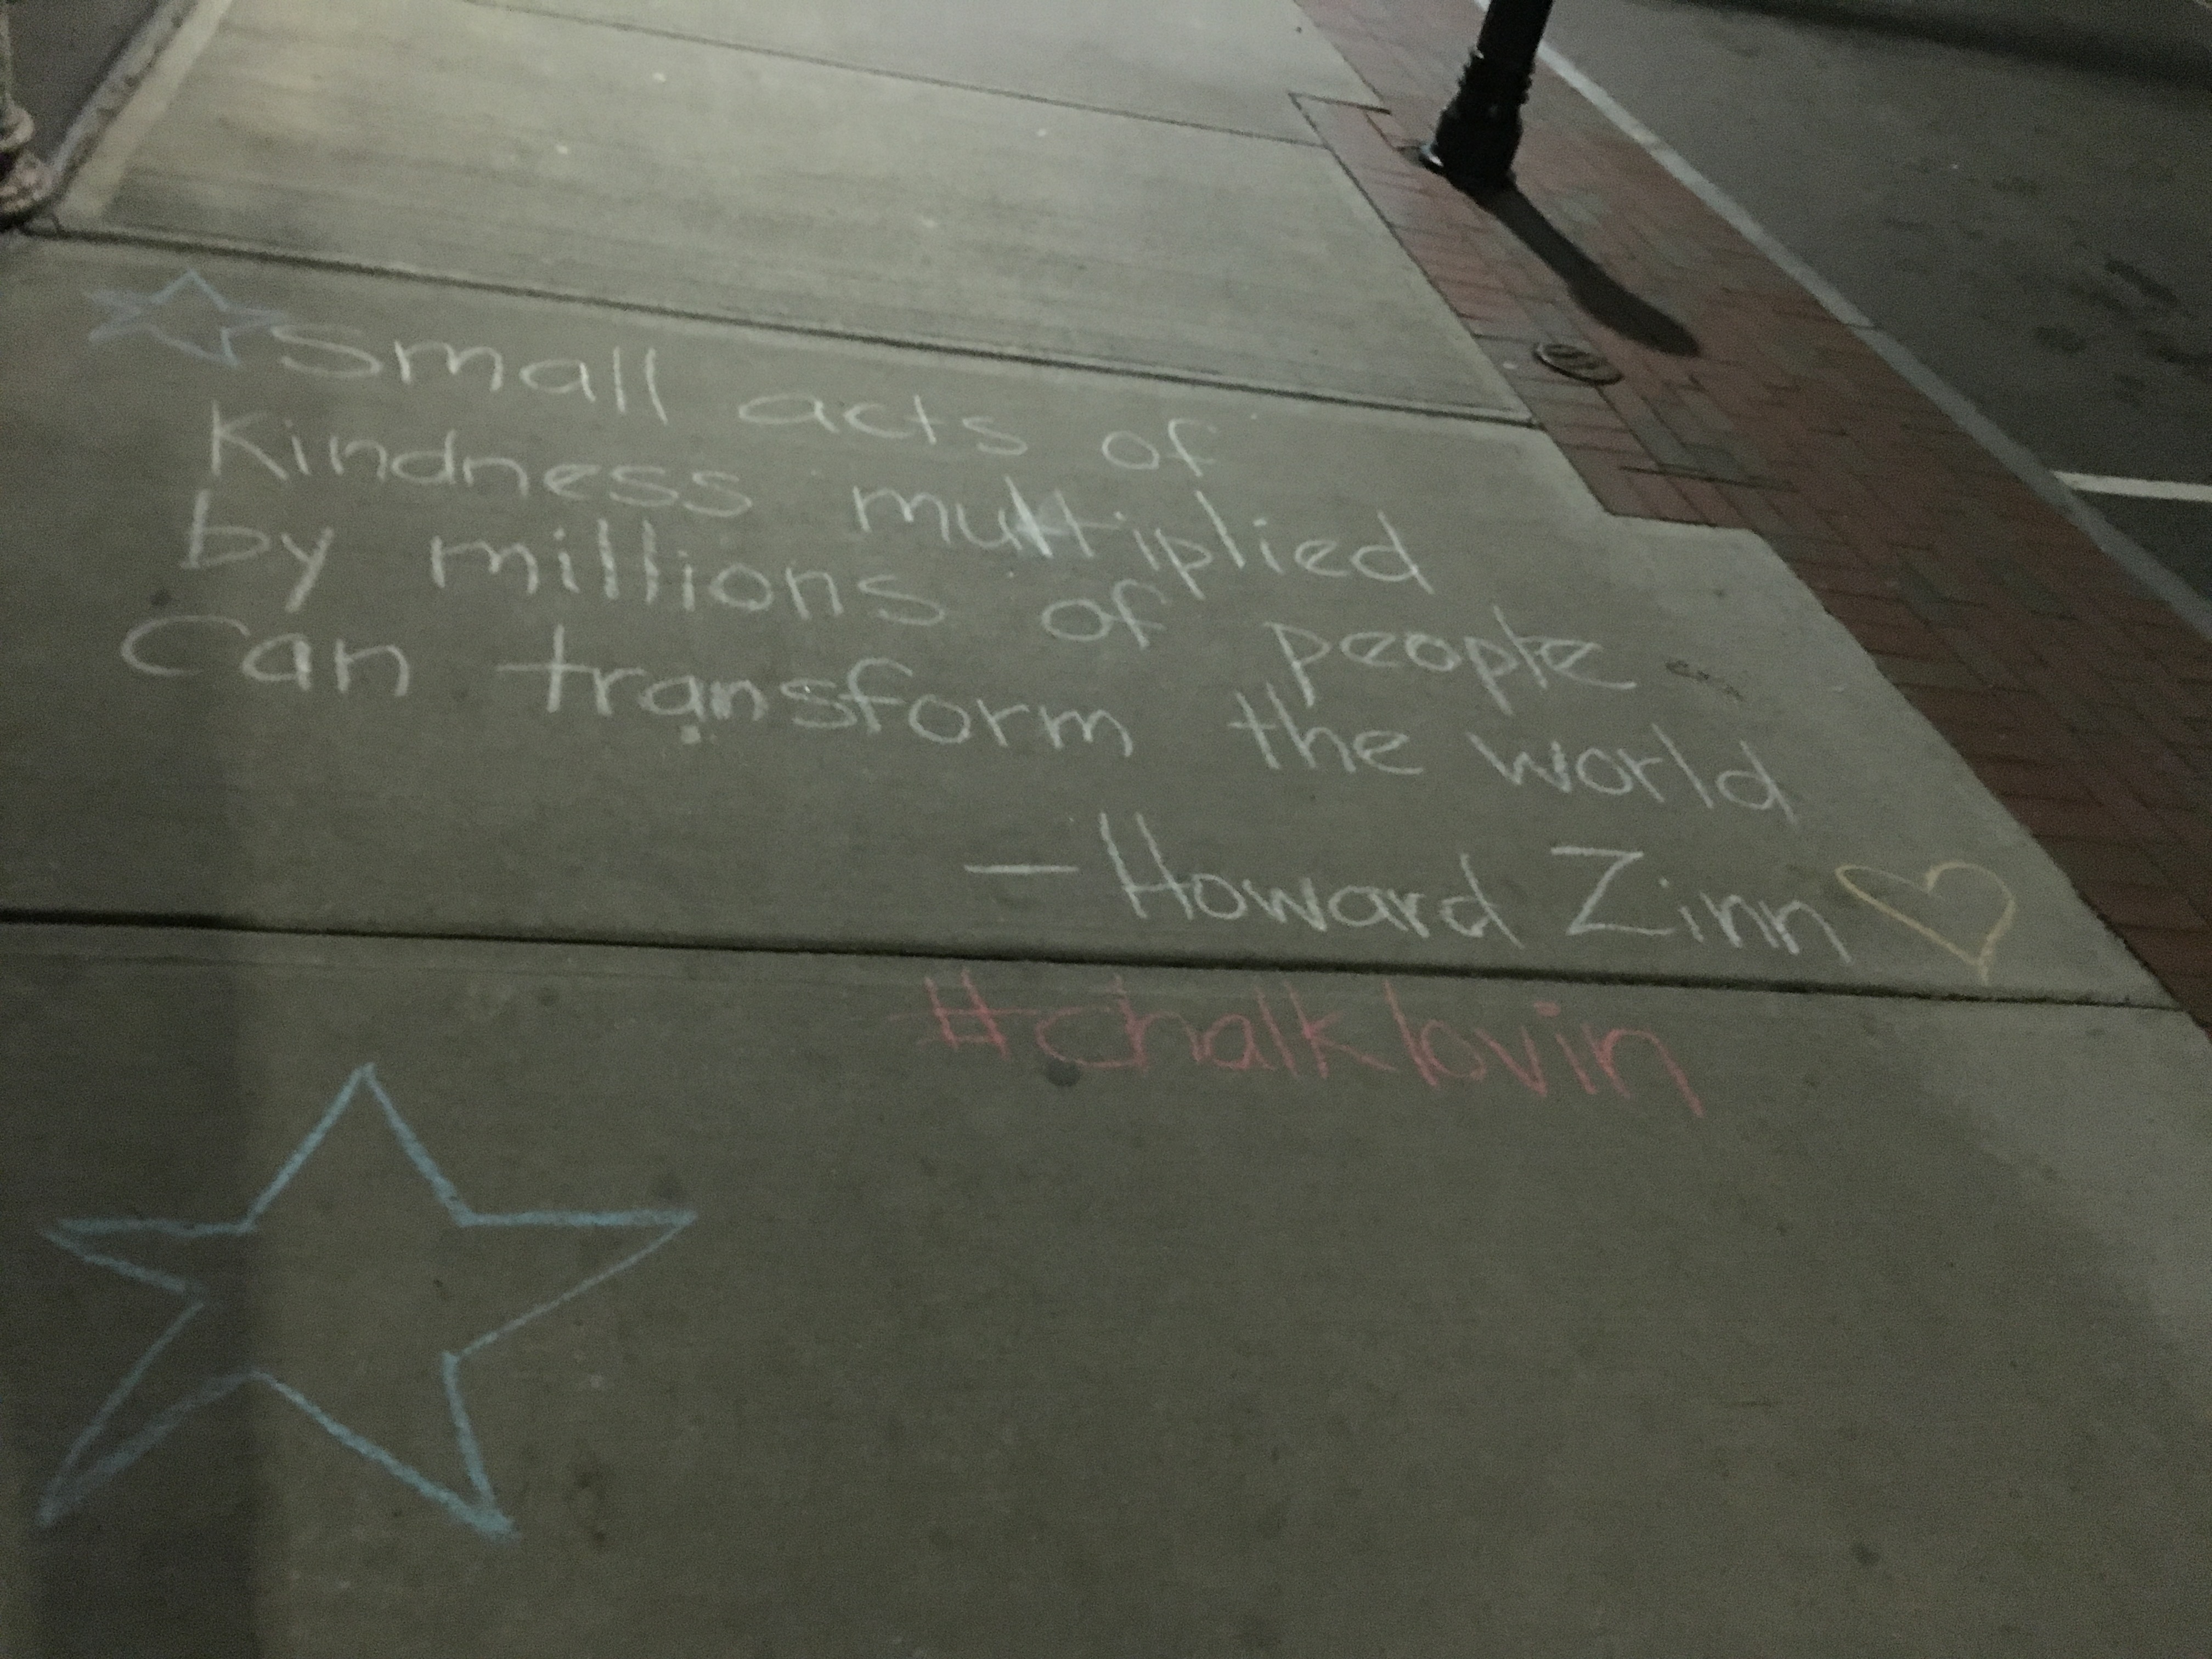 Small acts of
Kindness multiplied
by millions of people
Can transform the world
- Howard Zinn
#chalklovin